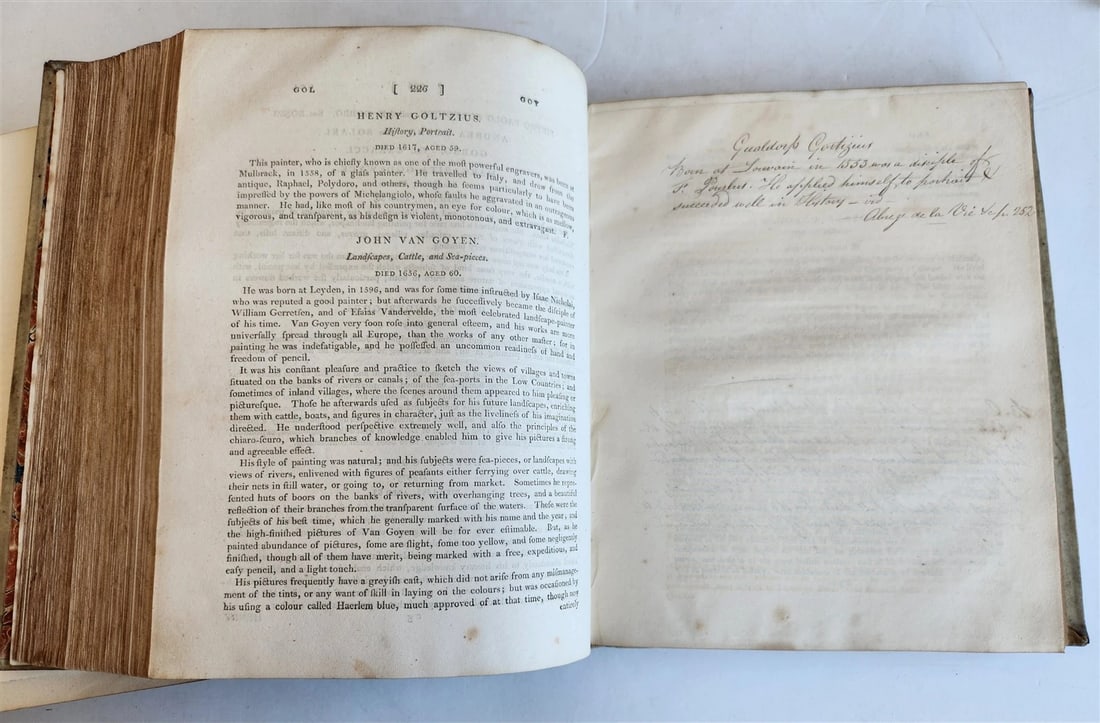 GOL [ 226 ] GOY
HENRY GOLTZIUS.
Hiſtory, Portrait.
DIED 1617, AGED 59.
This painter, who is chiefly known as one of the moſt powerful engravers, was born at
Mulbrack, in 1558, of a glaſs painter. He travelled to Italy, and drew from the
antique, Raphael, Polydoro, and others, though he ſeems particularly to have been
impreſſed by the powers of Michelangiolo, whoſe faults he aggravated in an outrageous
manner. He had, like moſt of his countrymen, an eye for colour, which is as mellow,
vigorous, and tranſparent, as his deſign is violent, monotonous, and extravagant. F.
JOHN VAN GOYEN.
Landſcapes, Cattle, and Sea-pieces.
DIED 1656, AGED 60.
He was born at Leyden, in 1596, and was for ſome time inſtructed by Iſaac Nicholai,
who was reputed a good painter; but afterwards he ſucceſſively became the diſciple of
William Gerretſen, and of Eſaias Vandervelde, the moſt celebrated landſcape-painter
of his time. Van Goyen very ſoon roſe into general eſteem, and his works are more
univerſally ſpread through all Europe, than the works of any other maſter; for in
painting he was indefatigable, and he poſſeſſed an uncommon readineſs of hand and
freedom of pencil.
It was his conſtant pleaſure and practice to ſketch the views of villages and towns
ſituated on the banks of rivers or canals; of the ſea-ports in the Low Countries; and
ſometimes of inland villages, where the ſcenes around them appeared to him pleaſing or
pictureſque. Thoſe he afterwards uſed as ſubjects for his future landſcapes, enriching
them with cattle, boats, and figures in character, juſt as the livelineſs of his imagination
directed. He underſtood perſpective extremely well, and alſo the principles of the
chiaro-ſcuro, which branches of knowledge enabled him to give his pictures a ſtrong
and agreeable effect.
His ſtyle of painting was natural; and his ſubjects were ſea-pieces, or landſcapes with
views of rivers, enlivened with figures of peaſants either ferrying over cattle, drawing
their nets in ſtill water, or going to, or returning from market. Sometimes he repre-
ſented huts of boors on the banks of rivers, with overhanging trees, and a beautiful
reflection of their branches from the tranſparent ſurface of the waters. Theſe were the
ſubjects of his beſt time, which he generally marked with his name and the year; and
the high-finiſhed pictures of Van Goyen will be for ever eſtimable. But, as he
painted abundance of pictures, ſome are ſlight, ſome too yellow, and ſome negligently
finiſhed, though all of them have merit, being marked with a free, expeditious, and
eaſy pencil, and a light touch.
His pictures frequently have a greyiſh caſt, which did not ariſe from any miſmanage-
ment of the tints, or any want of ſkill in laying on the colours; but was occaſioned by
his uſing a colour called Haerlem blue, much approved of at that time, though now
entirely
Gualdorp Gortizius
Born at Louvain in 1553 was a disciple of
F. He applied himself to portrait &
succeeded well in History — vid —
Abrégé de la Vie &c p. 252